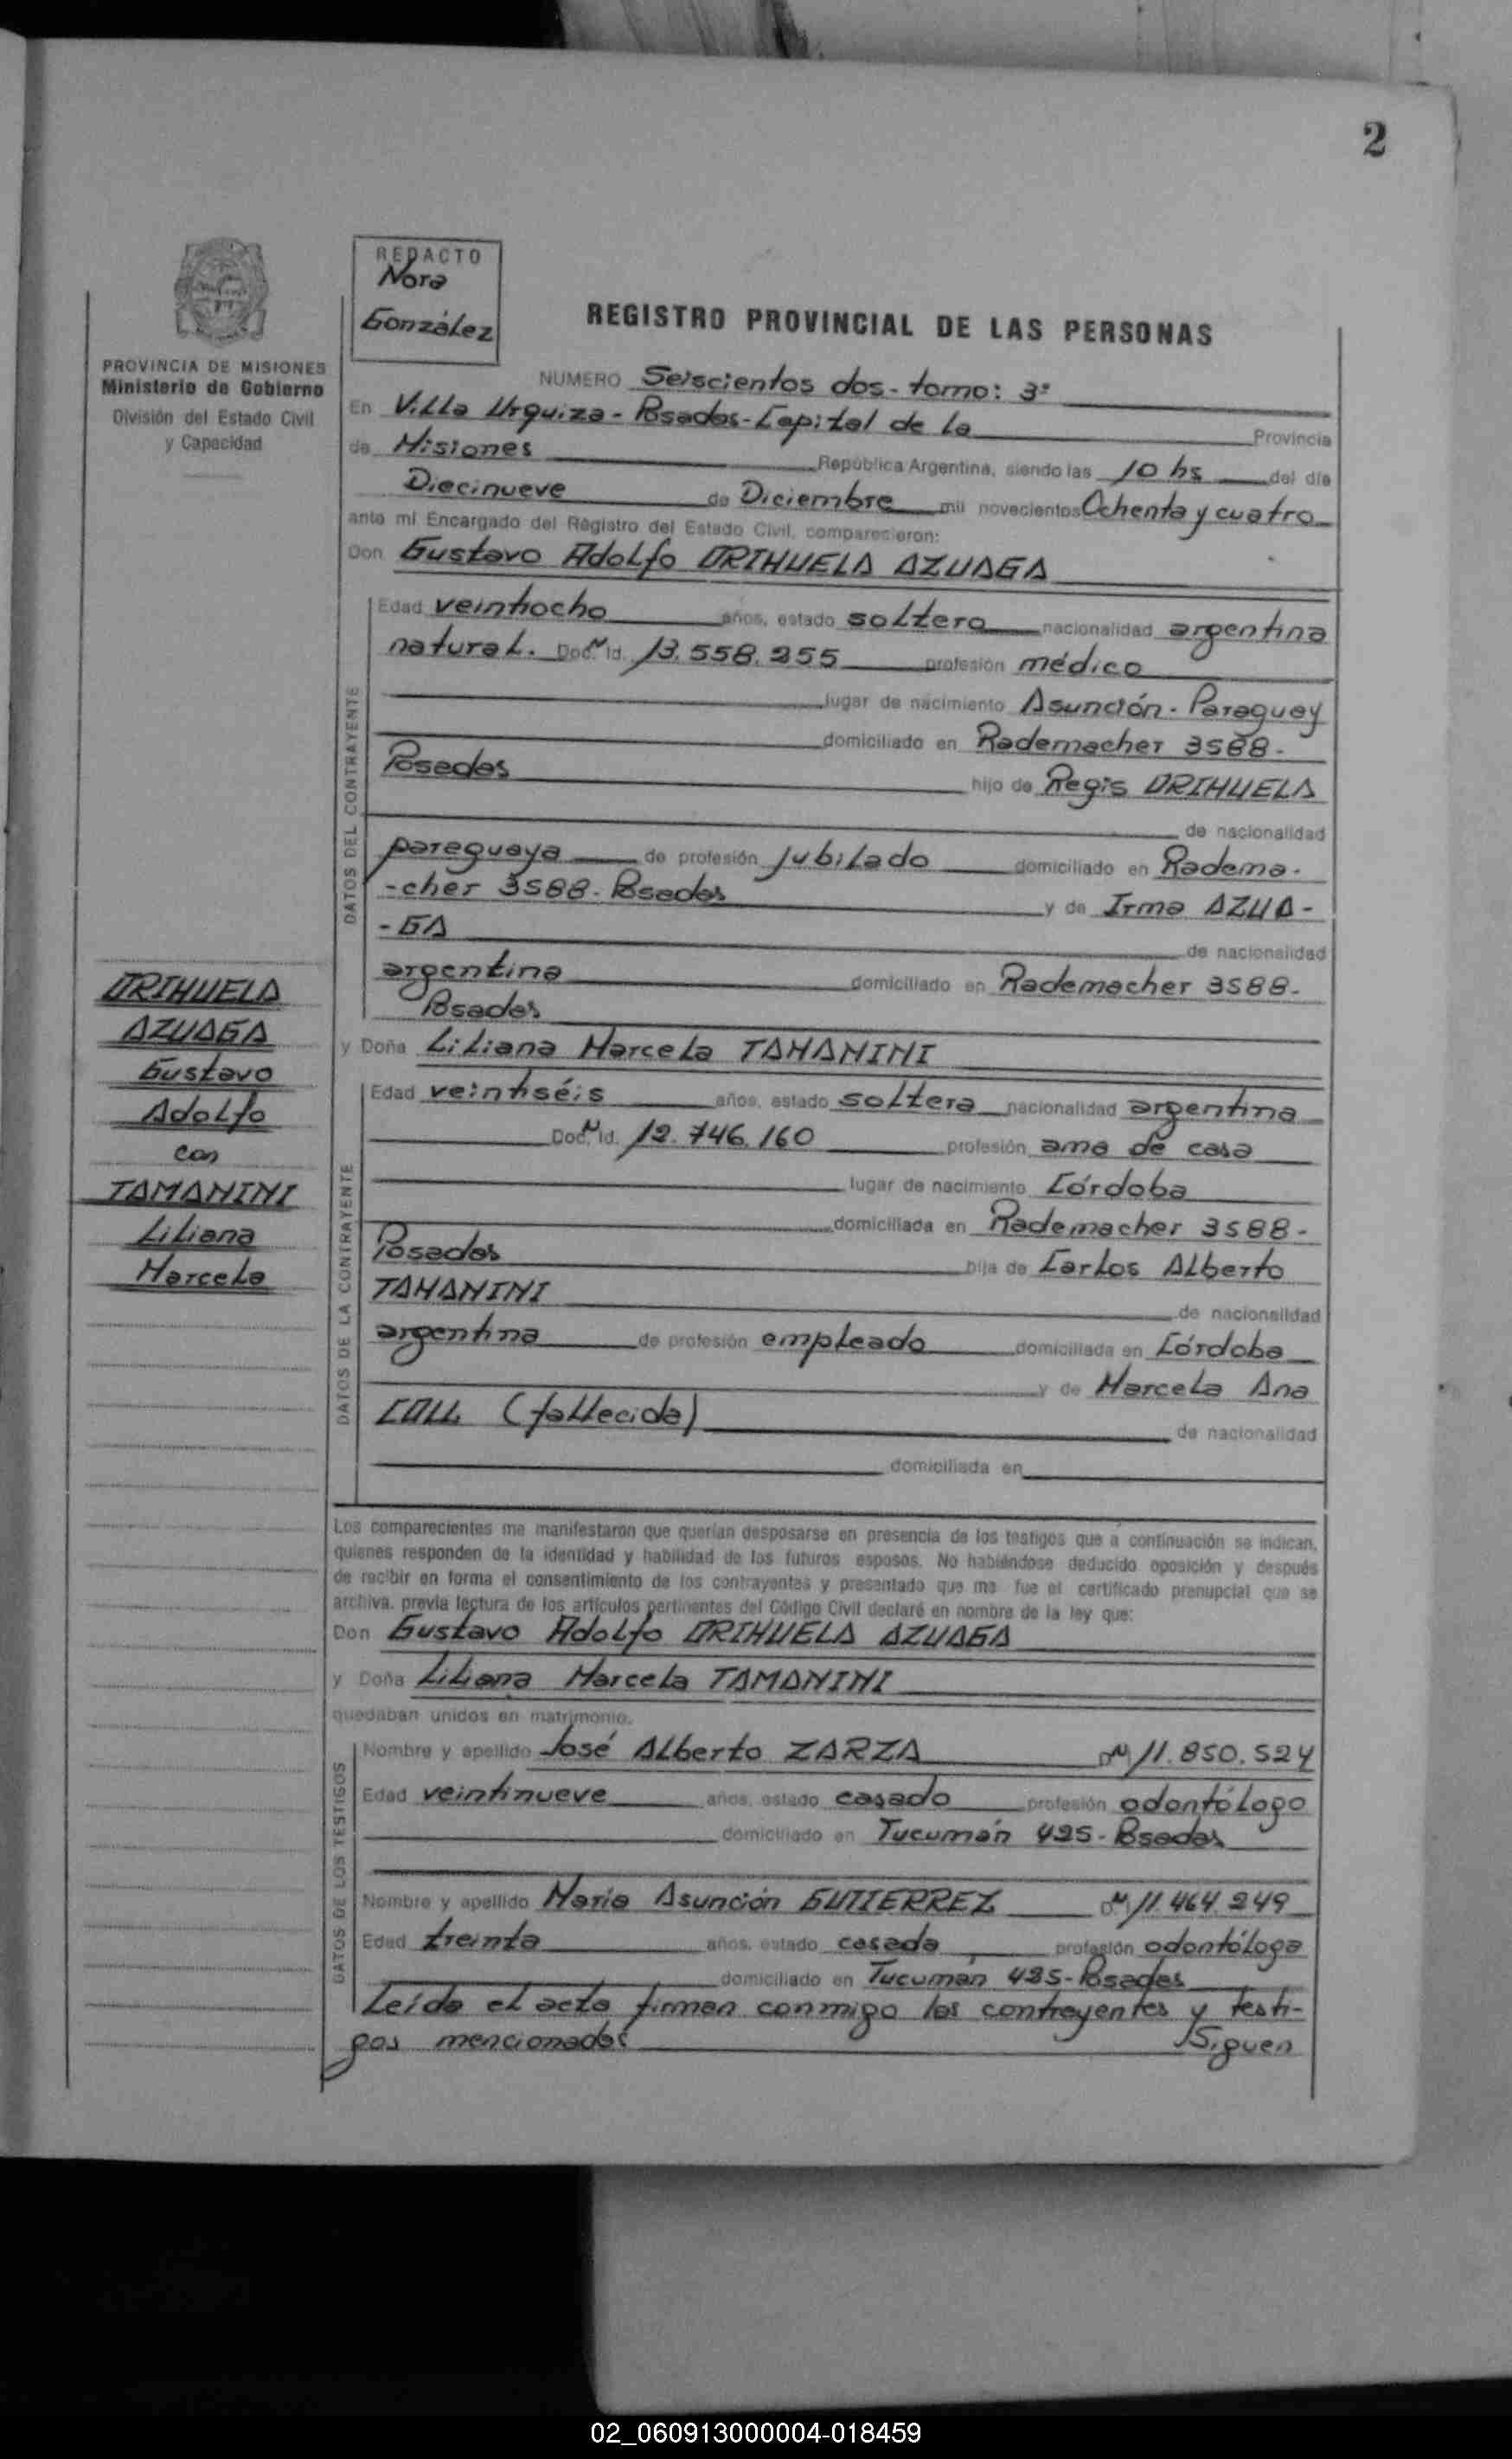 2
REDACTO
Nora
González
PROVINCIA DE MISIONES
Ministerio de Gobierno
División del Estado Civil
y Capacidad
REGISTRO PROVINCIAL DE LAS PERSONAS
NUMERO Seiscientos dos - tomo: 3º
En Villa Urquiza - Posadas - Capital de la Provincia
de Misiones República Argentina, siendo las 10 hs del día
Diecinueve de Diciembre mil novecientos Ochenta y cuatro
ante mi Encargado del Registro del Estado Civil, comparecieron:
Don Gustavo Adolfo ORIHUELA AZUAGA
DATOS DEL CONTRAYENTE
Edad veintiocho años, estado soltero nacionalidad argentina
natural. Doc. Id. 13.558.255 profesión médico
lugar de nacimiento Asunción - Paraguay
domiciliado en Rademacher 3588 -
Posadas hijo de Regis ORIHUELA
de nacionalidad
paraguaya de profesión jubilado domiciliado en Radema-
-cher 3588 - Posadas y de Irma AZUA-
-GA de nacionalidad
argentina domiciliado en Rademacher 3588 -
Posadas
ORIHUELA
AZUAGA
Gustavo
Adolfo
con
TAMANINI
Liliana
Marcela
y Doña Liliana Marcela TAMANINI
DATOS DE LA CONTRAYENTE
Edad veintiséis años, estado soltera nacionalidad argentina
Doc. Id. 12.746.160 profesión ama de casa
lugar de nacimiento Córdoba
domiciliada en Rademacher 3588 -
Posadas hija de Carlos Alberto
TAMANINI de nacionalidad
argentina de profesión empleado domiciliada en Córdoba
y de Marcela Ana
COLL (fallecida) de nacionalidad
domiciliada en
Los comparecientes me manifestaron que querían desposarse en presencia de los testigos que a continuación se indican,
quienes responden de la identidad y habilidad de los futuros esposos. No habiéndose deducido oposición y después
de recibir en forma el consentimiento de los contrayentes y presentado que me fue el certificado prenupcial que se
archiva, previa lectura de los artículos pertinentes del Código Civil declaré en nombre de la ley que:
Don Gustavo Adolfo ORIHUELA AZUAGA
y Doña Liliana Marcela TAMANINI
quedaban unidos en matrimonio.
DATOS DE LOS TESTIGOS
Nombre y apellido José Alberto ZARZA 11.850.524
Edad veintinueve años, estado casado profesión odontólogo
domiciliado en Tucumán 425 - Posadas
Nombre y apellido María Asunción GUTIERREZ 11.464.249
Edad treinta años, estado casada profesión odontóloga
domiciliado en Tucumán 425 - Posadas
Leída el acta firman conmigo los contrayentes y testi-
gos mencionados Siguen
02_060913000004-018459